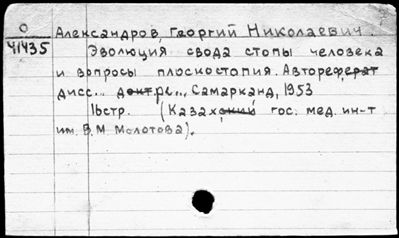 О Александров, Георгий Николаевич.
41435 Эволюция свода стопы человека
и вопросы плоскостопия. Автореферат
дисс... докт ре.., Самарканд, 1953
16стр. (Казахский гос. мед. ин-т
им. В.М Молотова).